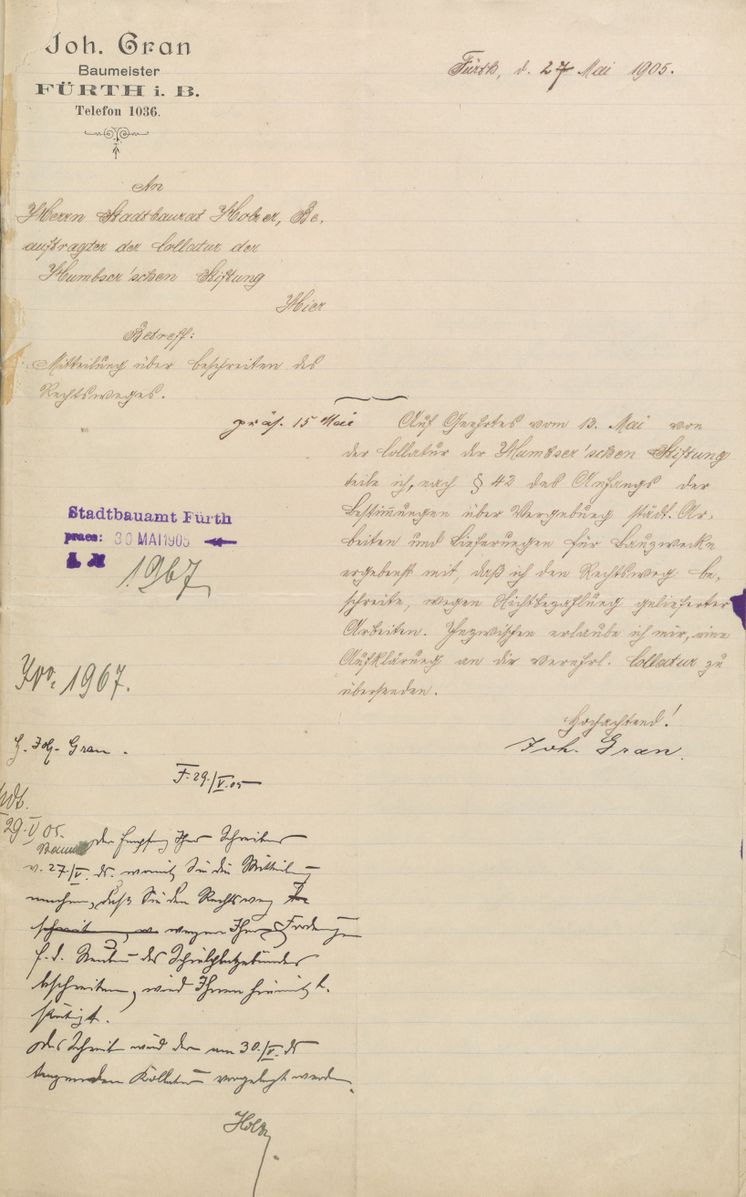 Joh. Gran
Baumeister
FÜRTH i. B.
Telefon 1036.
Fürth, d. 27 Mai 1905.
An
Herrn Stadtbaurat Holzer, Be-
auftragter der Collatur der
Humbser'schen Stiftung
Hier
Betreff:
Mitteilung über beschreiten des
Rechtsweges.
präs. 15 Mai
Auf Geehrtes vom 13. Mai von
der Collatur der Humbser'schen Stiftung
teile ich, nach § 42 des Anhangs der
Bestimungen über Vergebung städt. Ar-
beiten und Lieferungen für Bauzwecke
ergebenst mit, daß ich den Rechtsweg be-
schreite, wegen Nichtbezahlung gelieferter
Arbeiten. Inzwischen erlaube ich mir, eine
Aufklärung an die verehrl. Collatur zu
übersenden.
Hochachtend!
Joh. Gran.
Stadtbauamt Fürth
praes: 30 MAI 1905
1967
No. 1967.
H. Joh. Gran.
F. 29./V.05
29.V 05.
Der Empfang Ihres Schreibens
v. 27/V. ds. womit Sie die Mitteilung
machen, daß Sie den Rechtsweg be
schreiten, wegen Ihrer Forderungen
f. d. Neubau des Schulhausgebäudes
beschreiten, wird Ihnen hiermit be-
stätigt.
Das Schreiben wird der am 30./V. ds
tagenden Kollatur vorgelegt werden.
Holzer